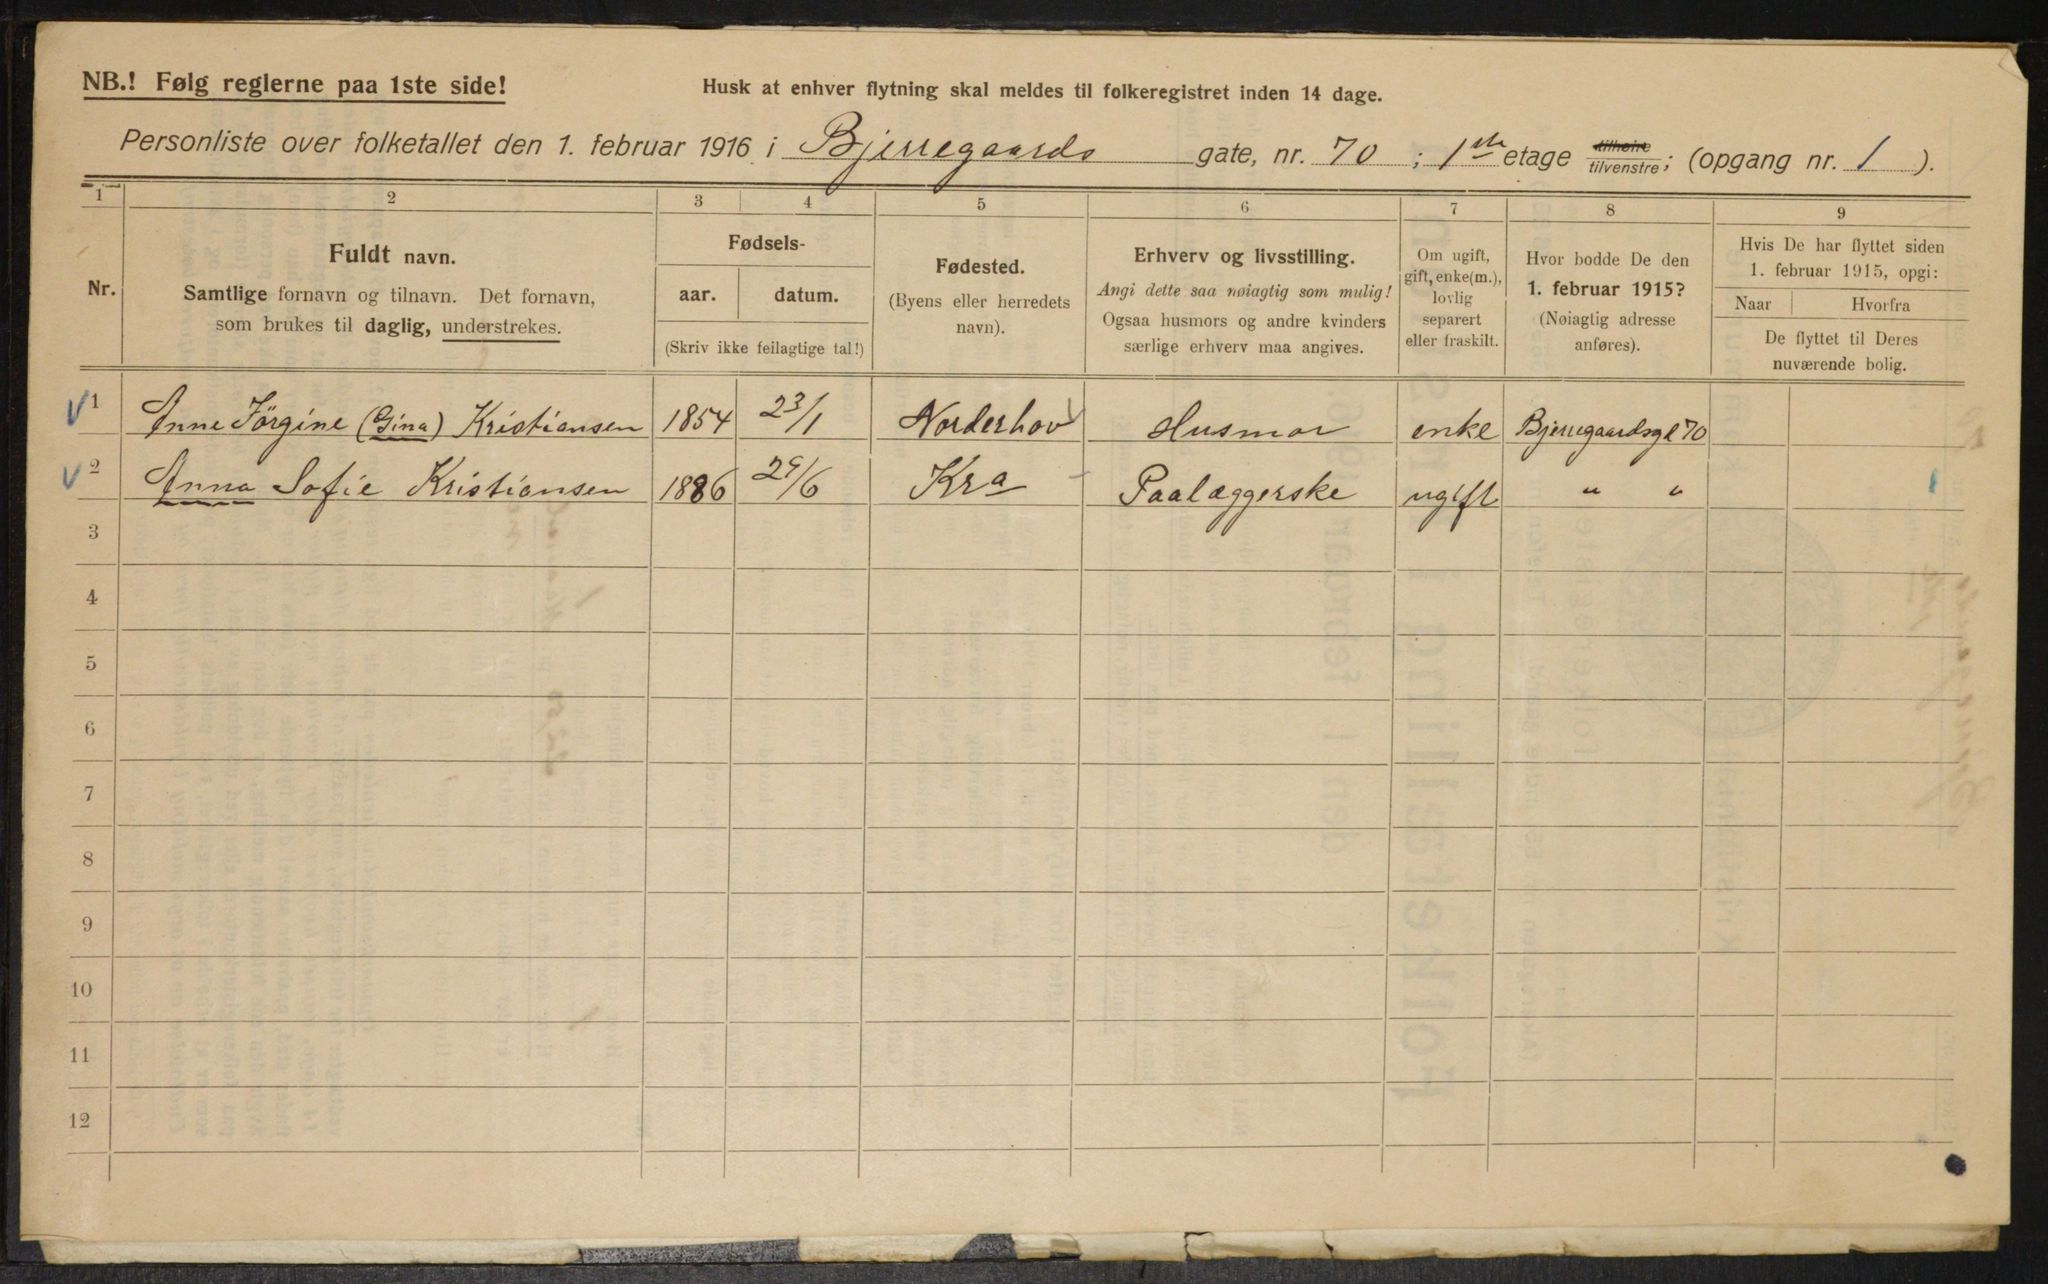 NB.! Følg reglerne paa 1ste side!
Husk at enhver flytning skal meldes til folkeregistret inden 14 dage.
Personliste over folketallet den 1. februar 1916 i Bjerregaards gate, nr. 70 ; 1ste etage tilhøire/tilvenstre; (opgang nr. 1 ).
1 2 3 4 5 6 7 8 9
Nr.
Fuldt navn.
Samtlige fornavn og tilnavn. Det fornavn,
som brukes til daglig, understrekes.
Fødsels-
aar. datum.
(Skriv ikke feilagtige tal!)
Fødested.
(Byens eller herredets
navn).
Erhverv og livsstilling.
Angi dette saa nøiagtig som mulig!
Ogsaa husmors og andre kvinders
særlige erhverv maa angives.
Om ugift,
gift, enke(m.),
lovlig
separert
eller fraskilt.
Hvor bodde De den
1. februar 1915?
(Nøiagtig adresse
anføres).
Hvis De har flyttet siden
1. februar 1915, opgi:
Naar Hvorfra
De flyttet til Deres
nuværende bolig.
1 Anne Jörgine (Gina) Kristiansen 1854 23/1 Norderhov Husmor enke Bjerregaardsgt 70
2 Anna Sofie Kristiansen 1886 29/6 Kra Paalæggerske ugift " "
3
4
5
6
7
8
9
10
11
12